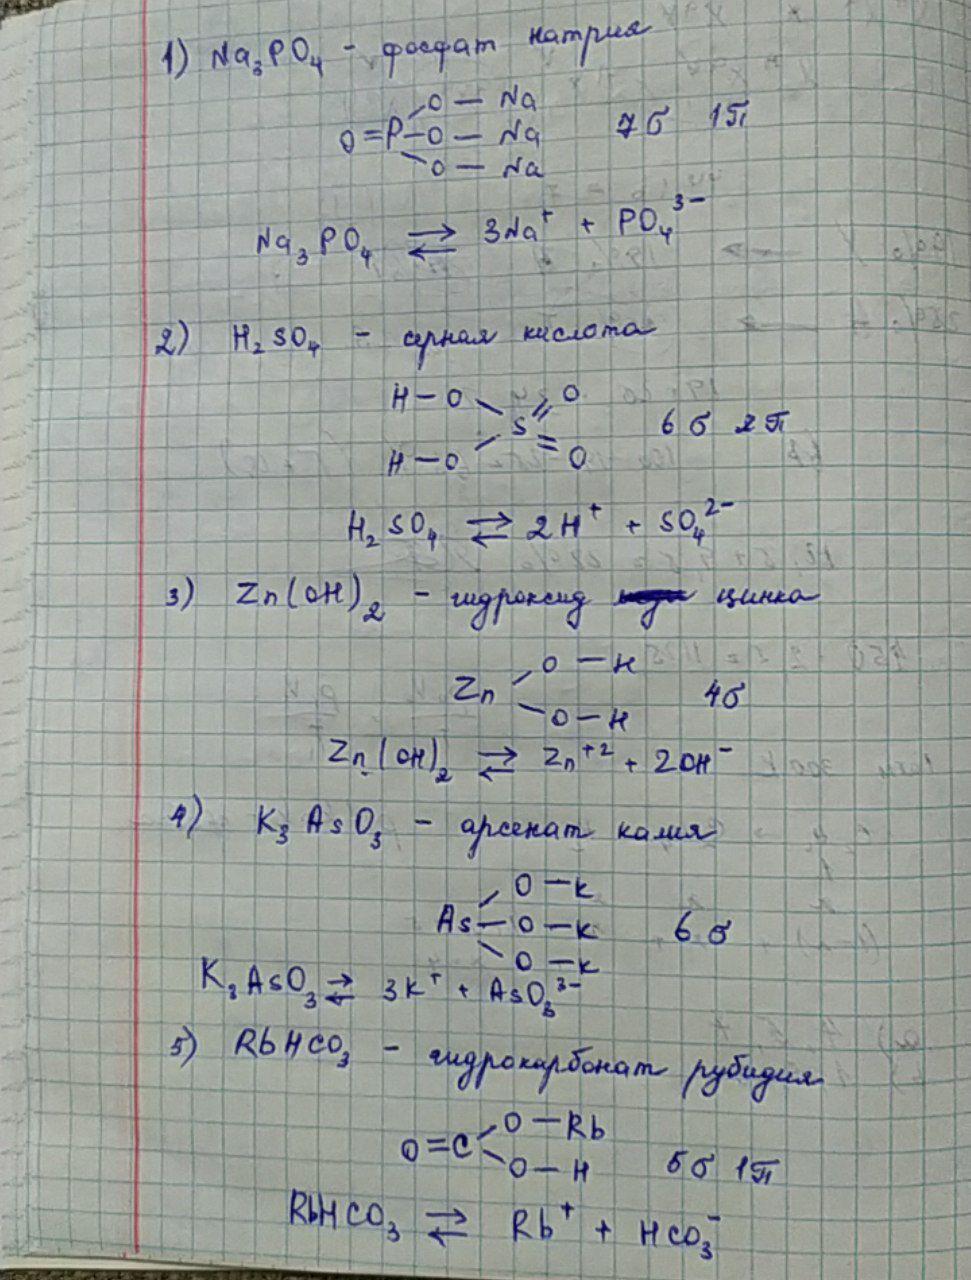 1) Na₃PO₄ - фосфат натрия
O — Na
O=P—O — Na 7σ 1π
O — Na
Na₃PO₄ ⇄ 3Na⁺ + PO₄³⁻
2) H₂SO₄ - серная кислота
H—O O
S 6σ 2π
H—O O
H₂SO₄ ⇄ 2H⁺ + SO₄²⁻
3) Zn(OH)₂ - гидроксид цинка
O — H
Zn 4σ
O—H
Zn(OH)₂ ⇄ Zn⁺² + 2OH⁻
4) K₃AsO₃ - арсенат калия
O — K
As—O — K 6σ
O — K
K₃AsO₃ ⇄ 3K⁺ + AsO₃³⁻
5) RbHCO₃ - гидрокарбонат рубидия
O — Rb
O=C 5σ 1π
O — H
RbHCO₃ ⇄ Rb⁺ + HCO₃⁻